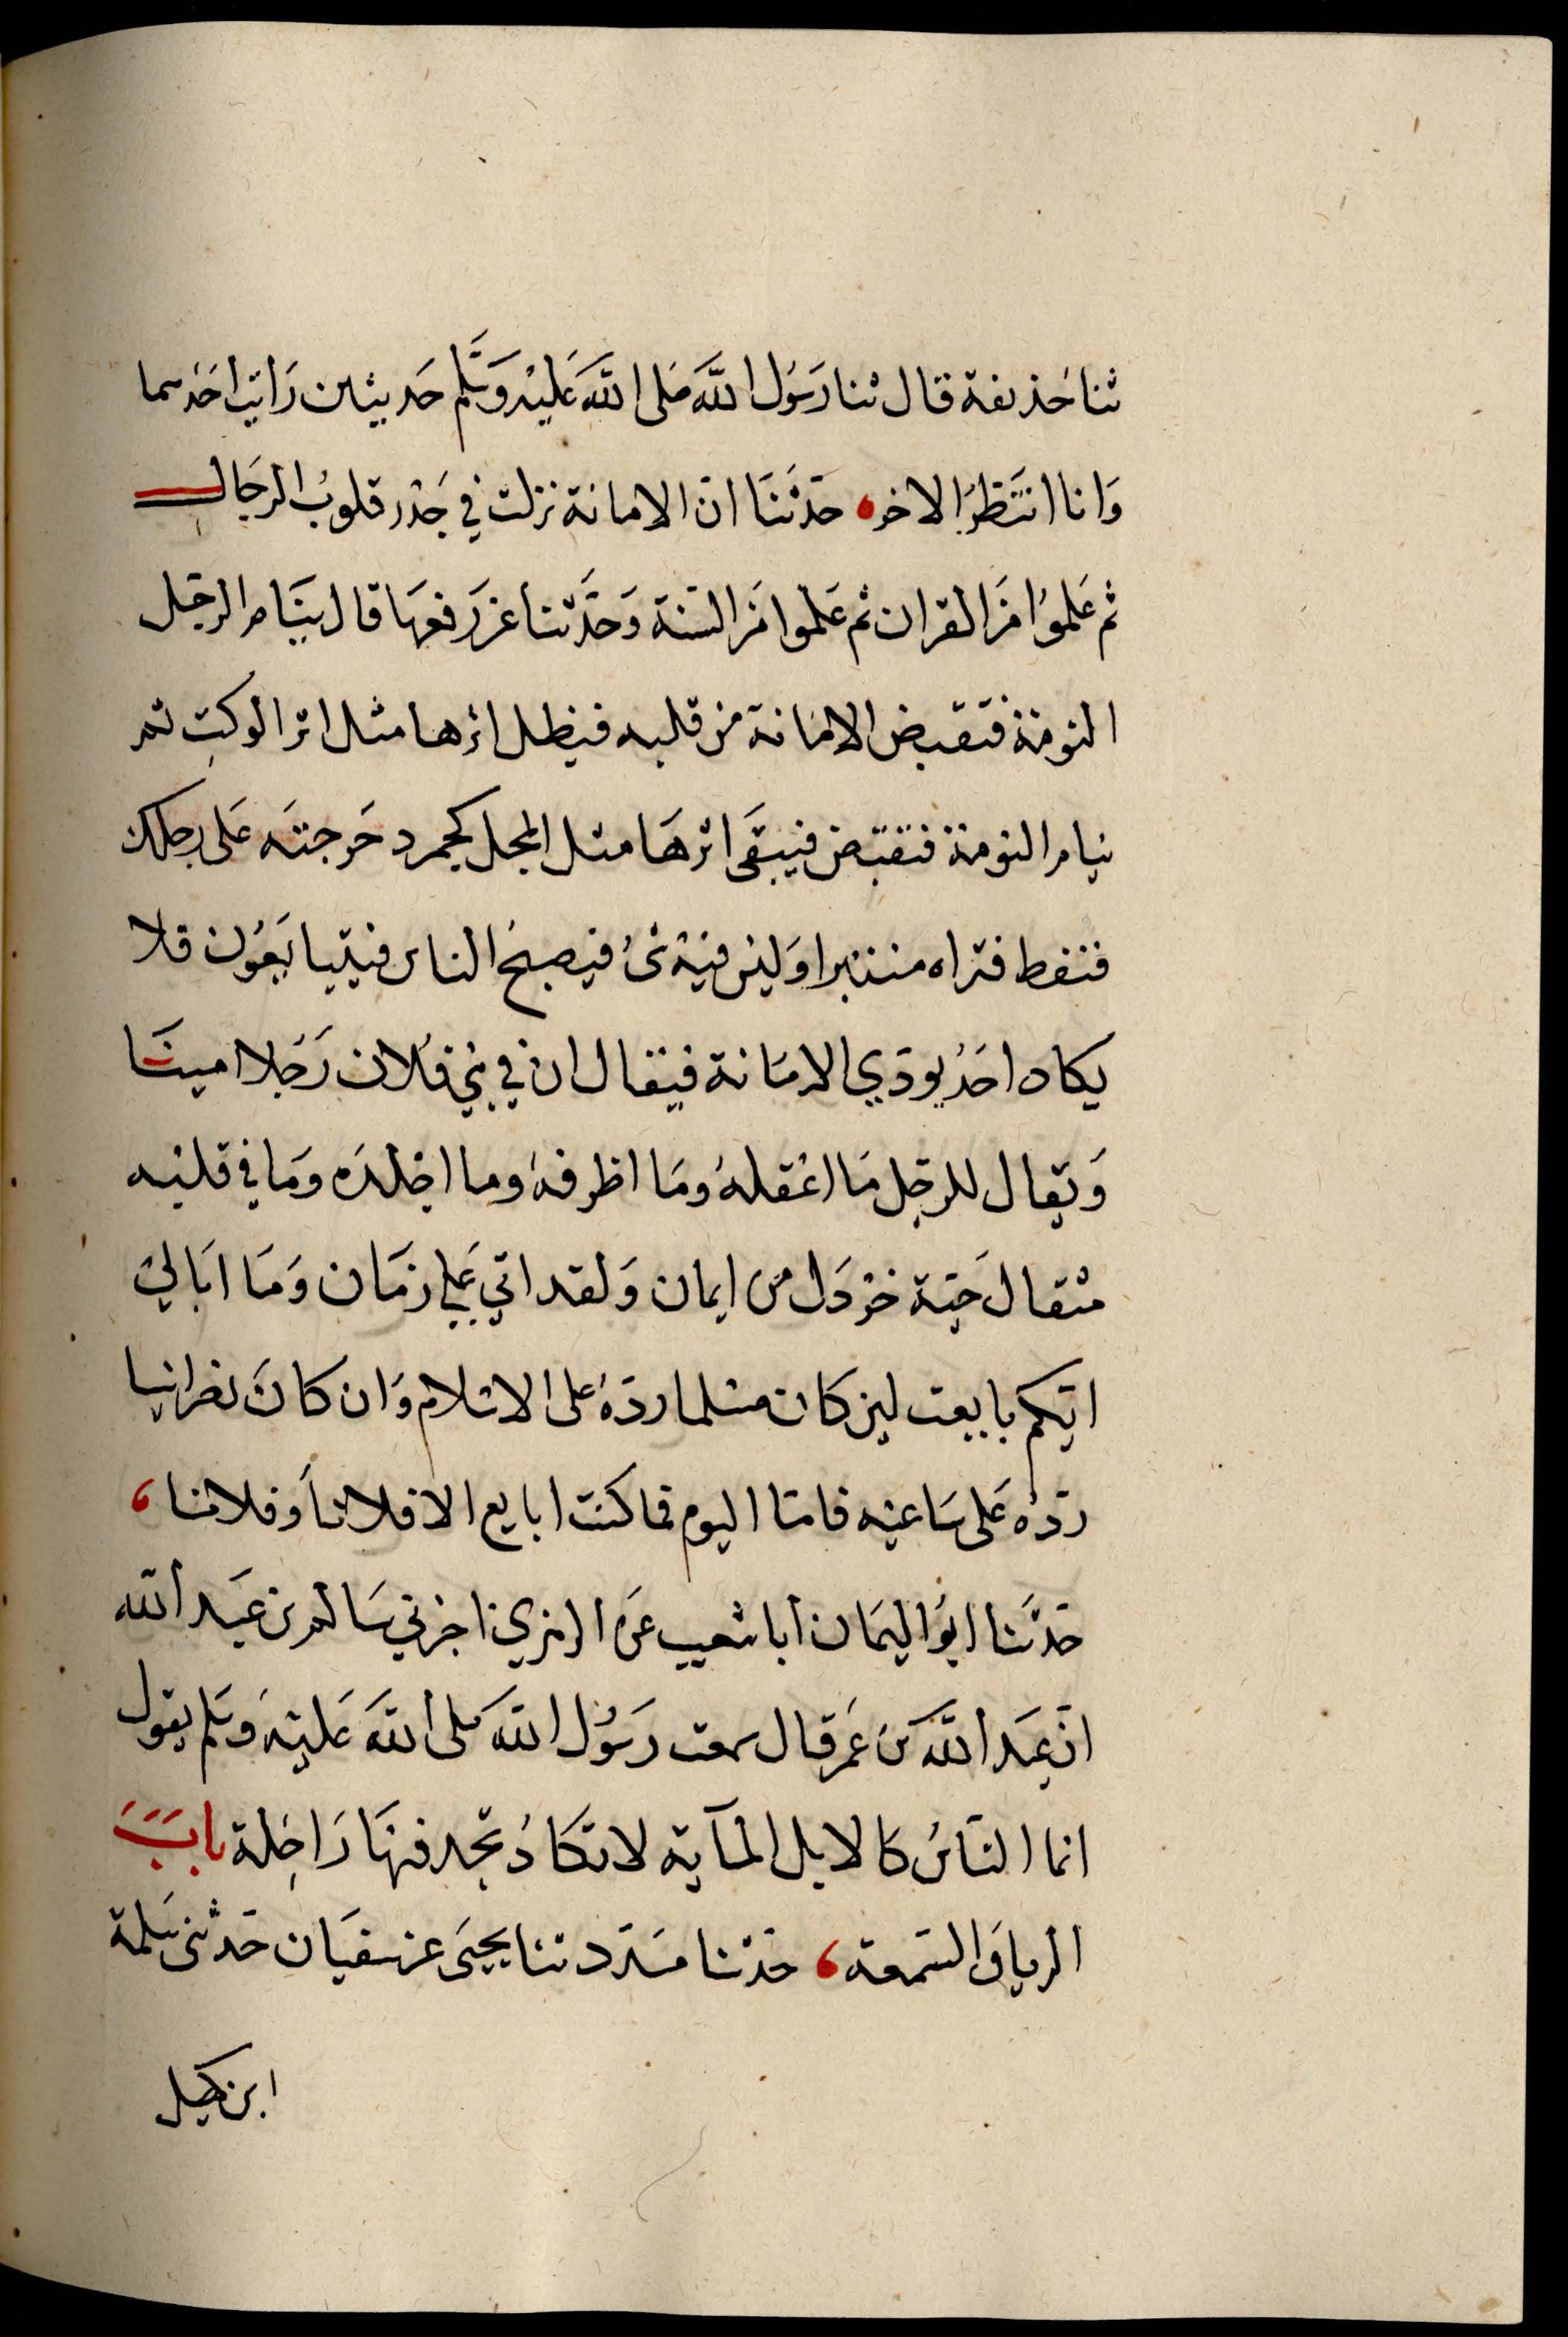 ثنا حُذيفة قال ثنا رَسُول اللَّه صَلى اللَّه عَليْه وَسَلَّم حَديثين رَايْت احَدهما
وَانا انتَظرُ الاخر، حَدّثنَا انّ الامانة نزلت في جَذْر قلوبُ الرجَال
ثم عَلموُا منَ القران ثم عَلموا منَ السّنة وَحَدَّثنا عن رَفعهَا قال ينَام الرجل
النومَة فتقبض الامَانة من قلبه فيظل اثرها مثل اثر الوكتِ ثم
ينام النومة فتقبَض فيبقَى اثرهَا مثل المجل كجمر دحَرجتَه عَلى رجلك
فنفط فتراه منتبرا وَليْس فيْهْ شىُ فيصبحُ الناس فيتبايَعوُن فلا
يكاد احَدُ يودّي الامَانة فيقال ان في بني فلان رَجُلا امينَا
وَيقال للرجل مَا اعْقلهُ ومَا اظرفهُ وما اجْلدَه ومَا في قلبْه
مثقال حَبّة خرْدَل من ايمان وَلقد اتي عَلي زمَان وَمَا ابَالي
ايّكم بايعت لين كان مسْلما ردّهُ على الاسْلام وَان كانَ نصرانيا
ردّهُ عَلى سَاعيْه فامّا اليوم فما كنت ابايع الا فلانا وَفلانا،
حَدّثنا ابُو اليمَان انا شعيب عَن الزهري اخبرني سَالم بن عَبد الله
انّ عبَد اللَّه بن عُمر قال سمعت رَسُول اللَّه صَلى اللَّه عَليْه وَسَلم يقول
انما النّاسُ كالابل المآية لا تكادُ تجد فيهَا رَاحِلة بابُ
الريا وَالسّمعة، حَدثنا مسَدّد ثنا يحيىَ عن سفيَان حَدثنى سَلمة
ابن كهيل